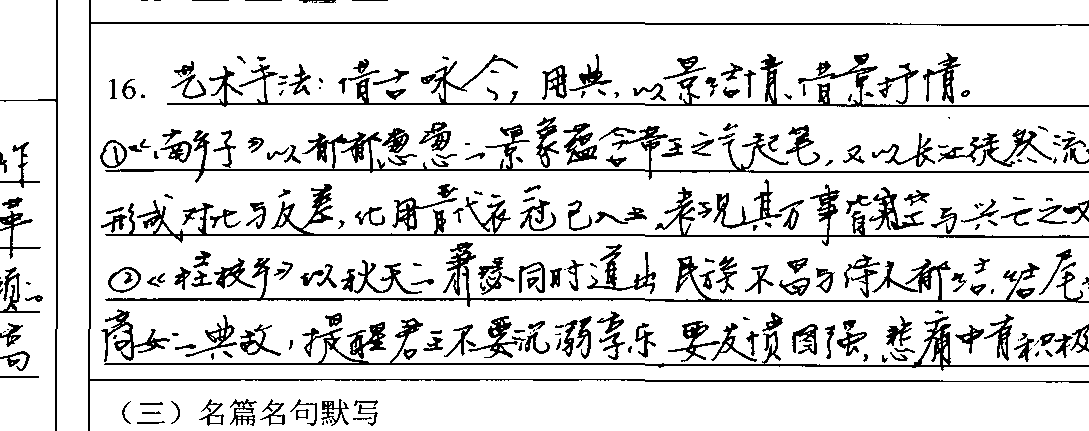 16. 艺术手法：借古咏今，用典，以景结情、借景抒情。
①《南乡子》以郁郁葱葱之景象蕴含帝王之气起笔，又以长江徒然流
形成对比与反差，化用晋代衣冠已入土，表现其万事皆寂空与兴亡之叹
②《桂枝香》以秋天之萧瑟同时道出民族不昌与诗人郁结，结尾
商女之典故，提醒君王不要沉溺享乐 要发愤图强，悲痛中有积极
（三）名篇名句默写
作
革
项。
高